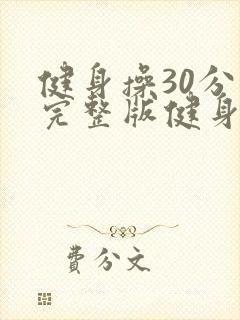 健身操30分
完整版健身
費分文